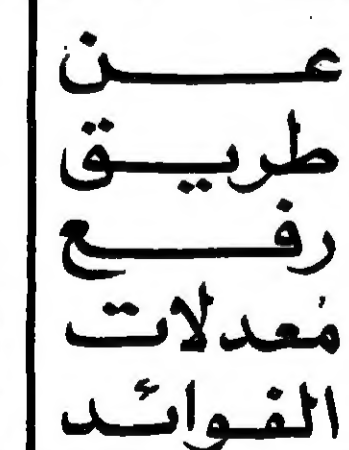 عن
طريق
رفع
مُعدلات
الفوائد